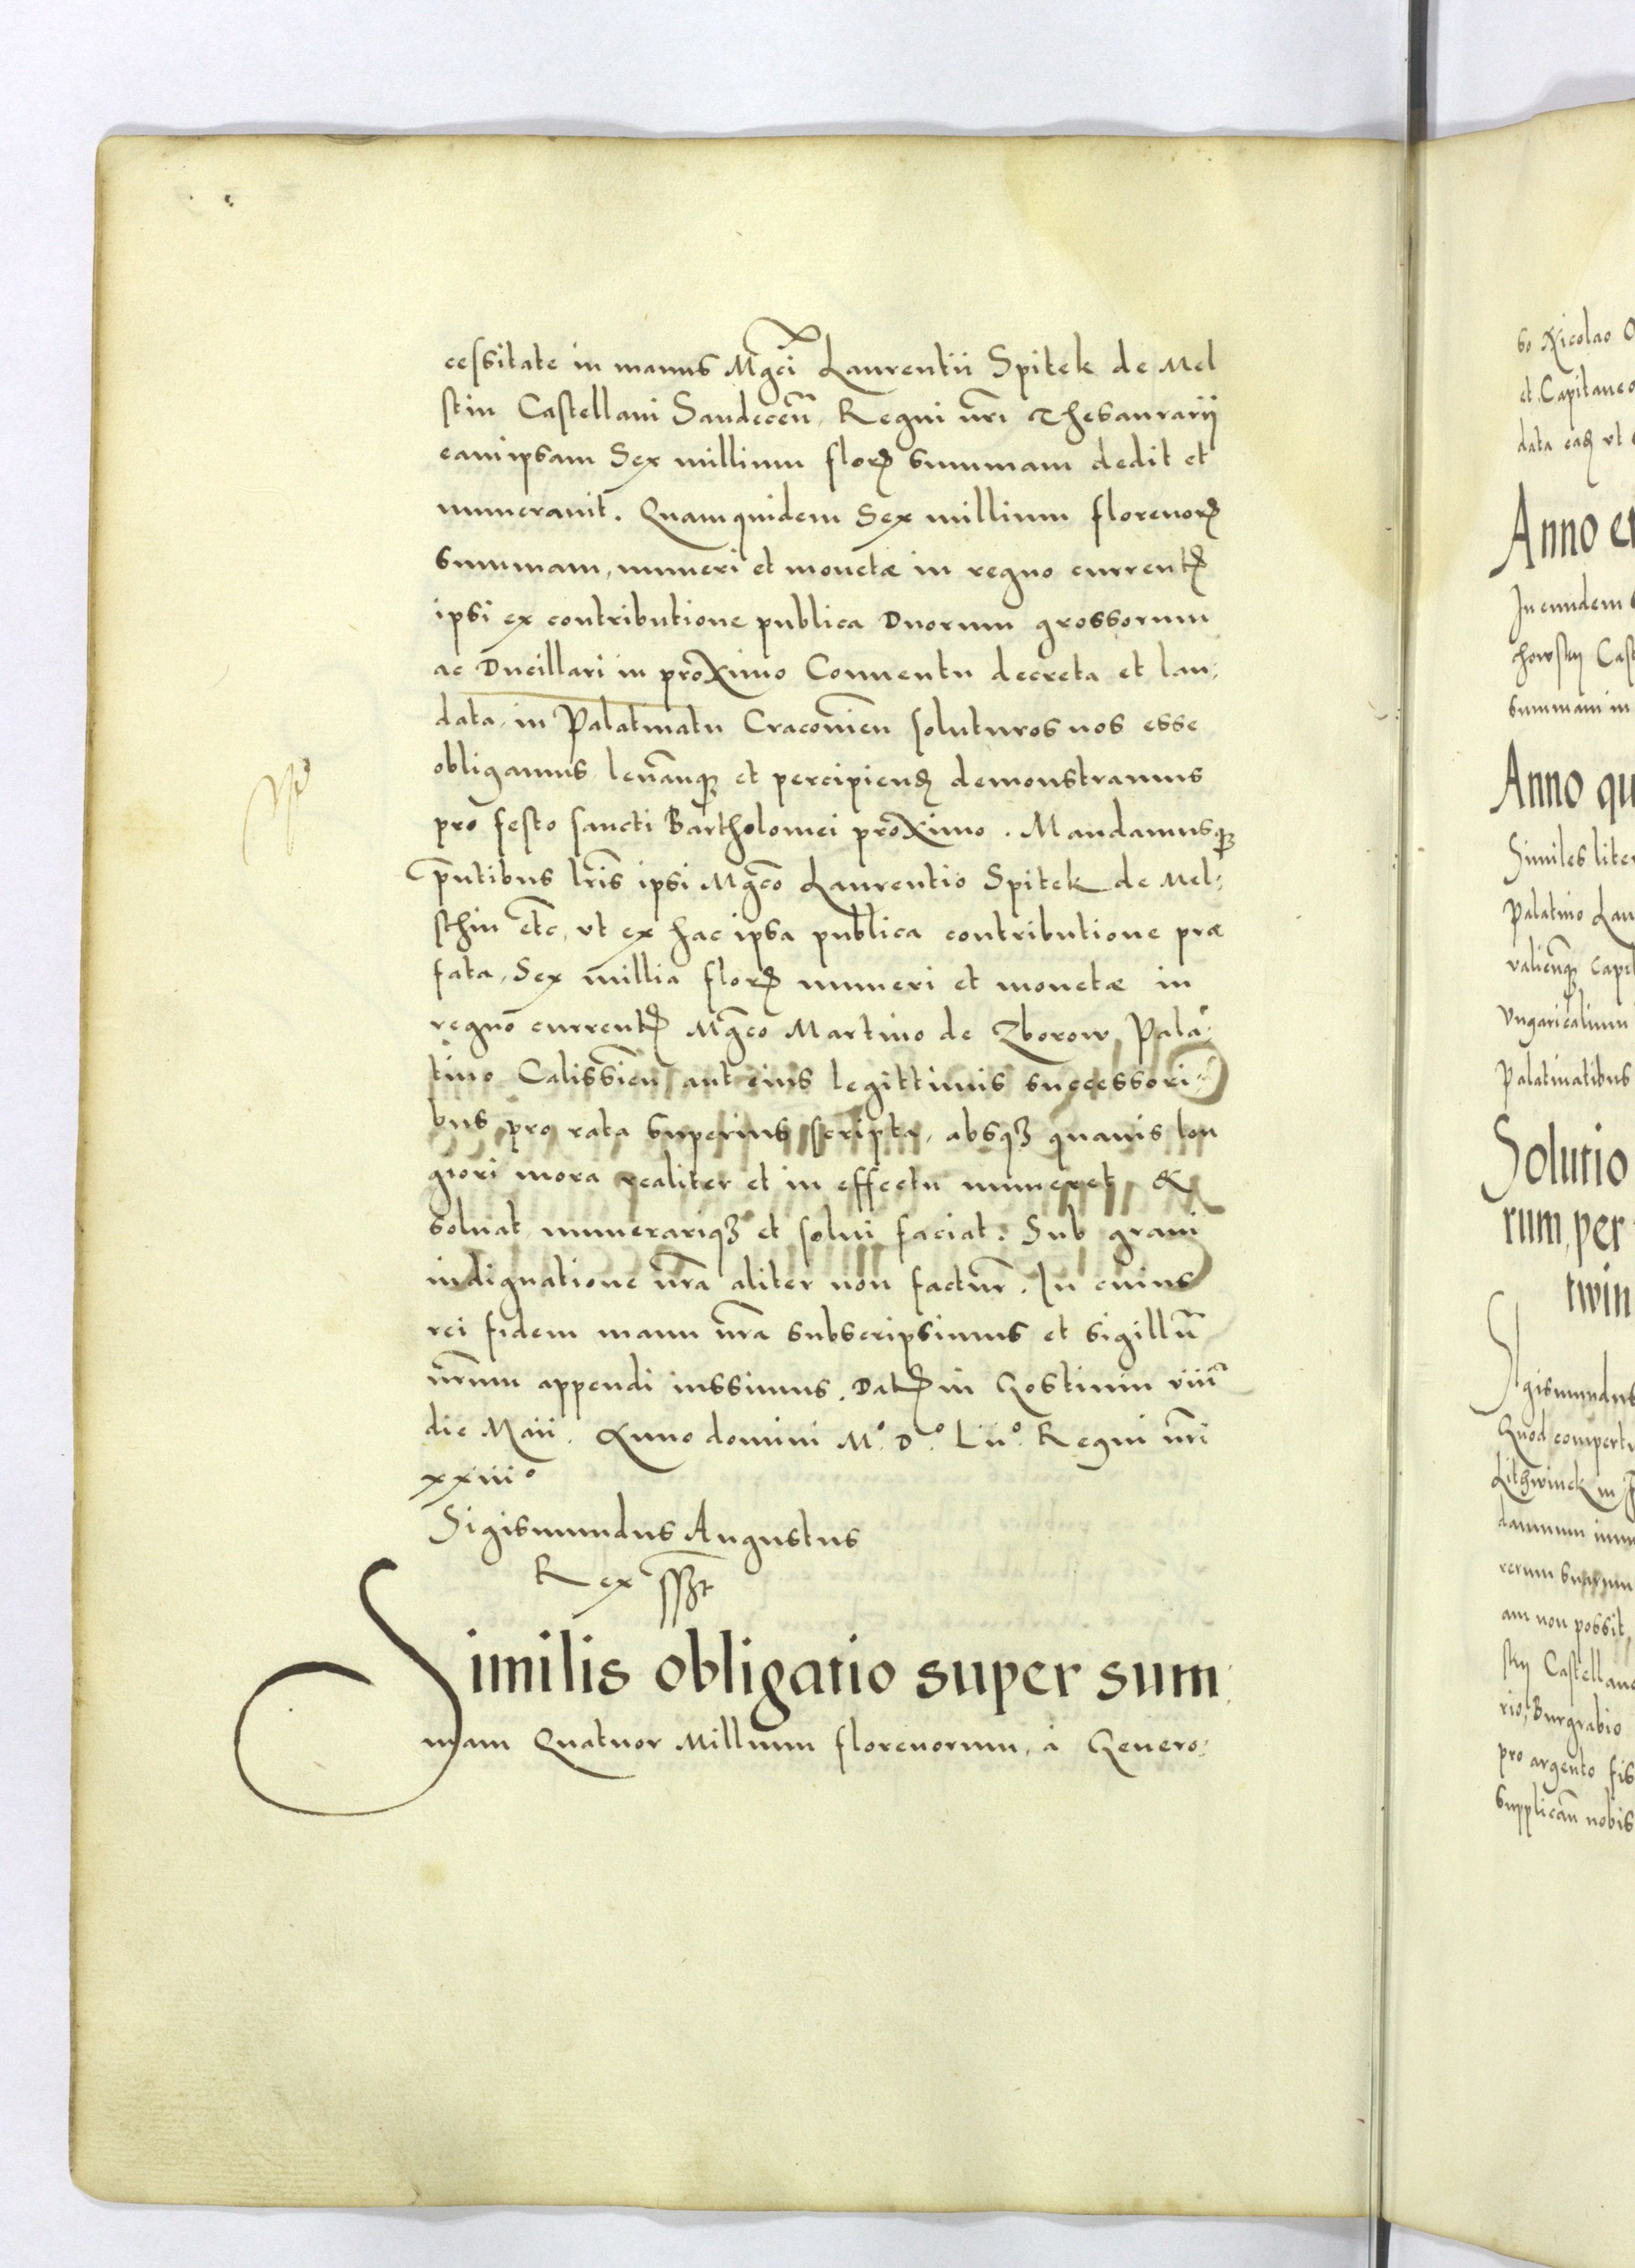 cessitate in manus Mgci Laurentii Spitek de Mel
stin Castellani Sandecen̄, Regni nr̄i Thesaurarij
eam ipsam Sex millium florꝝ summam dedit et
numerauit. Quamquidem Sex millium florenorꝝ
summam, numeri et monetæ in regno currentꝭ
ipsi ex contributione publica Duorum grossorum
ac Ducillari in proximo Conuentu decreta et lau-
data, in Palatinatu Cracouien̄ soluturos nos esse
obligamus, leuan̄que et percipienꝺ demonstramus
pro festo sancti Bartholomei proximo. Mandamusque
p̄ntibus lr̄is ipsi Mgco Laurentio Spitek de Mel-
sthin etc, vt ex hac ipsa publica contributione præ
fata, Sex millia florꝝ numeri et monetæ in
regno currentꝭ Mgco Martino de Zborow, Pala-
tino Calissien̄ aut eius legittimis successori-
bus, pro rata superius scripta, absqꝫ quauis lon
giori mora realiter et in effectu numeret, &
soluat, numerariqꝫ et solui faciat. Sub graui
indignatione nr̄a aliter non factur̄. In cuius
rei fidem manu nr̄a subscripsimus et sigillū
nr̄um appendi iussimus. Datꝭ in Gostinin viiiᵃ
die Maii. Anno domini Mº. Dº. Liiº. Regni nr̄i
xxiiiº
Sigismundus Augustus
Rex sszt
Similis obligatio super sum-
mam Quatuor Millium florenorum, à Genero-
so Nicolao
et Capitaneo
data eaꝝ vt
Anno
In eundem
summam in
Anno
Similes
Palatino
Palatinatibus
Solutio
rum, per
twin
Sigismundus
Quod
Lithwinck in
damnum
rerum suarum
am non possit,
skij Castellan
rio, Burgrabio
pro argento
supplican̄ nobis